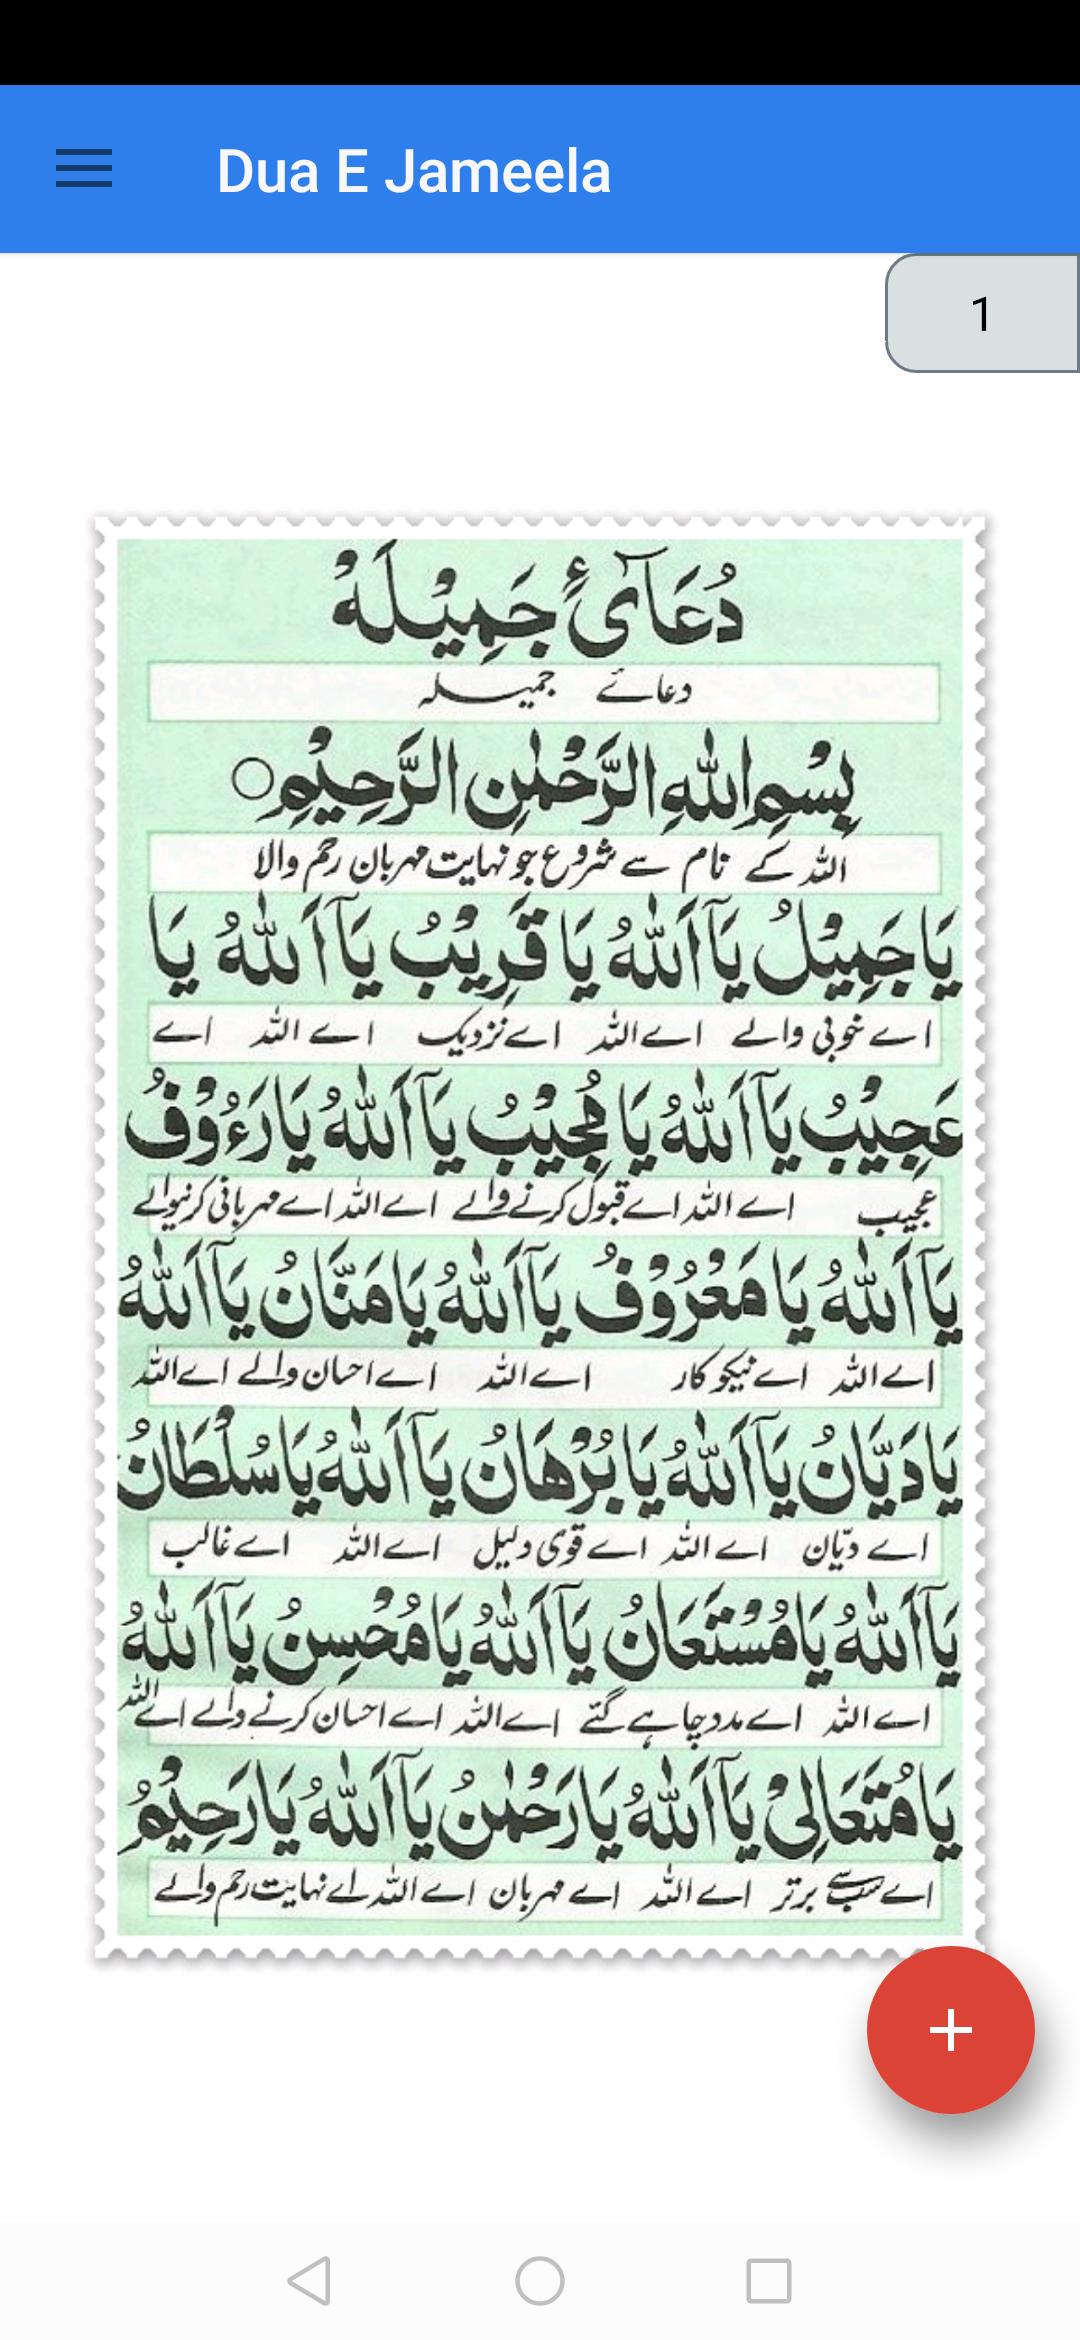 Dua E Jameela
1
دُعَآیٔ جَمِیْلَهْ
دعائے جمیلہ
بِسْمِ اللّٰهِ الرَّحْمٰنِ الرَّحِیْمِ○
اللہ کے نام سے شروع جو نہایت مہربان رحم والا
یَا جَمِیْلُ یَآ اَللّٰهُ یَا قَرِیْبُ یَآ اَللّٰهُ یَا
اے خوبی والے اے اللہ اے نزدیک اے اللہ اے
عَجِیْبُ یَآ اَللّٰهُ یَا مُجِیْبُ یَآ اَللّٰهُ یَا رَءُوْفُ
عجیب اے اللہ اے قبول کرنے والے اے اللہ اے مہربانی کرنیوالے
یَآ اَللّٰهُ یَا مَعْرُوْفُ یَآ اَللّٰهُ یَا مَنَّانُ یَآ اَللّٰهُ
اے اللہ اے نیکو کار اے اللہ اے احسان والے اے اللہ
یَا دَیَّانُ یَآ اَللّٰهُ یَا بُرْهَانُ یَآ اَللّٰهُ یَا سُلْطَانُ
اے دیّان اے اللہ اے قوی دلیل اے اللہ اے غالب
یَآ اَللّٰهُ یَا مُسْتَعَانُ یَآ اَللّٰهُ یَا مُحْسِنُ یَآ اَللّٰهُ
اے اللہ اے مدد چاہے گئے اے اللہ اے احسان کرنے والے اے اللہ
یَا مُتَعَالِیْ یَآ اَللّٰهُ یَا رَحْمٰنُ یَآ اَللّٰهُ یَا رَحِیْمُ
اے سب سے برتر اے اللہ اے مہربان اے اللہ اے نہایت رحم والے